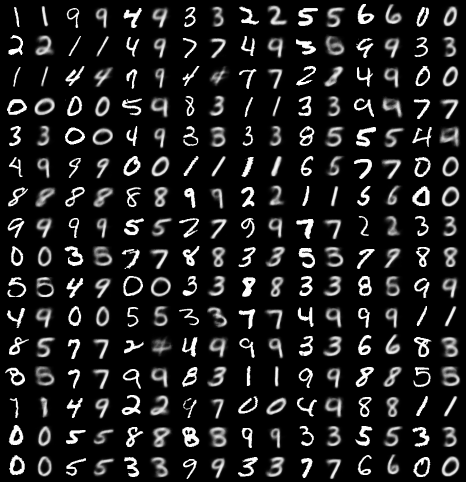 1 1 9 9 4 9 3 3 2 2 5 5 6 6 0 0
2 2 1 1 4 9 7 7 4 9 3 5 9 9 3 3
1 1 4 4 7 9 4 7 7 2 8 4 9 0 0
0 0 0 0 5 9 8 3 1 1 3 3 9 9 7 7
3 3 0 0 4 9 3 3 3 3 8 5 5 5 4 9
4 9 9 9 0 0 1 1 1 1 6 5 7 7 0 0
8 8 8 8 8 8 9 9 2 2 1 1 5 6 0 0
9 9 9 9 5 5 7 7 9 9 7 7 2 2 3 3
0 0 3 5 7 7 8 8 3 3 5 3 7 9 8 8
5 5 4 9 0 0 3 3 8 8 3 3 8 5 9 9
4 9 0 0 5 5 3 3 7 7 4 9 9 9 1 1
8 5 7 7 2 4 9 9 9 3 3 6 6 8 3
8 5 7 7 9 9 8 3 1 1 9 9 8 8 5 5
7 1 4 9 2 2 9 7 0 0 4 9 8 8 1 1
0 0 5 5 8 8 8 8 9 9 3 3 5 5 3 3
0 0 5 5 3 3 9 9 3 3 7 7 6 6 0 0